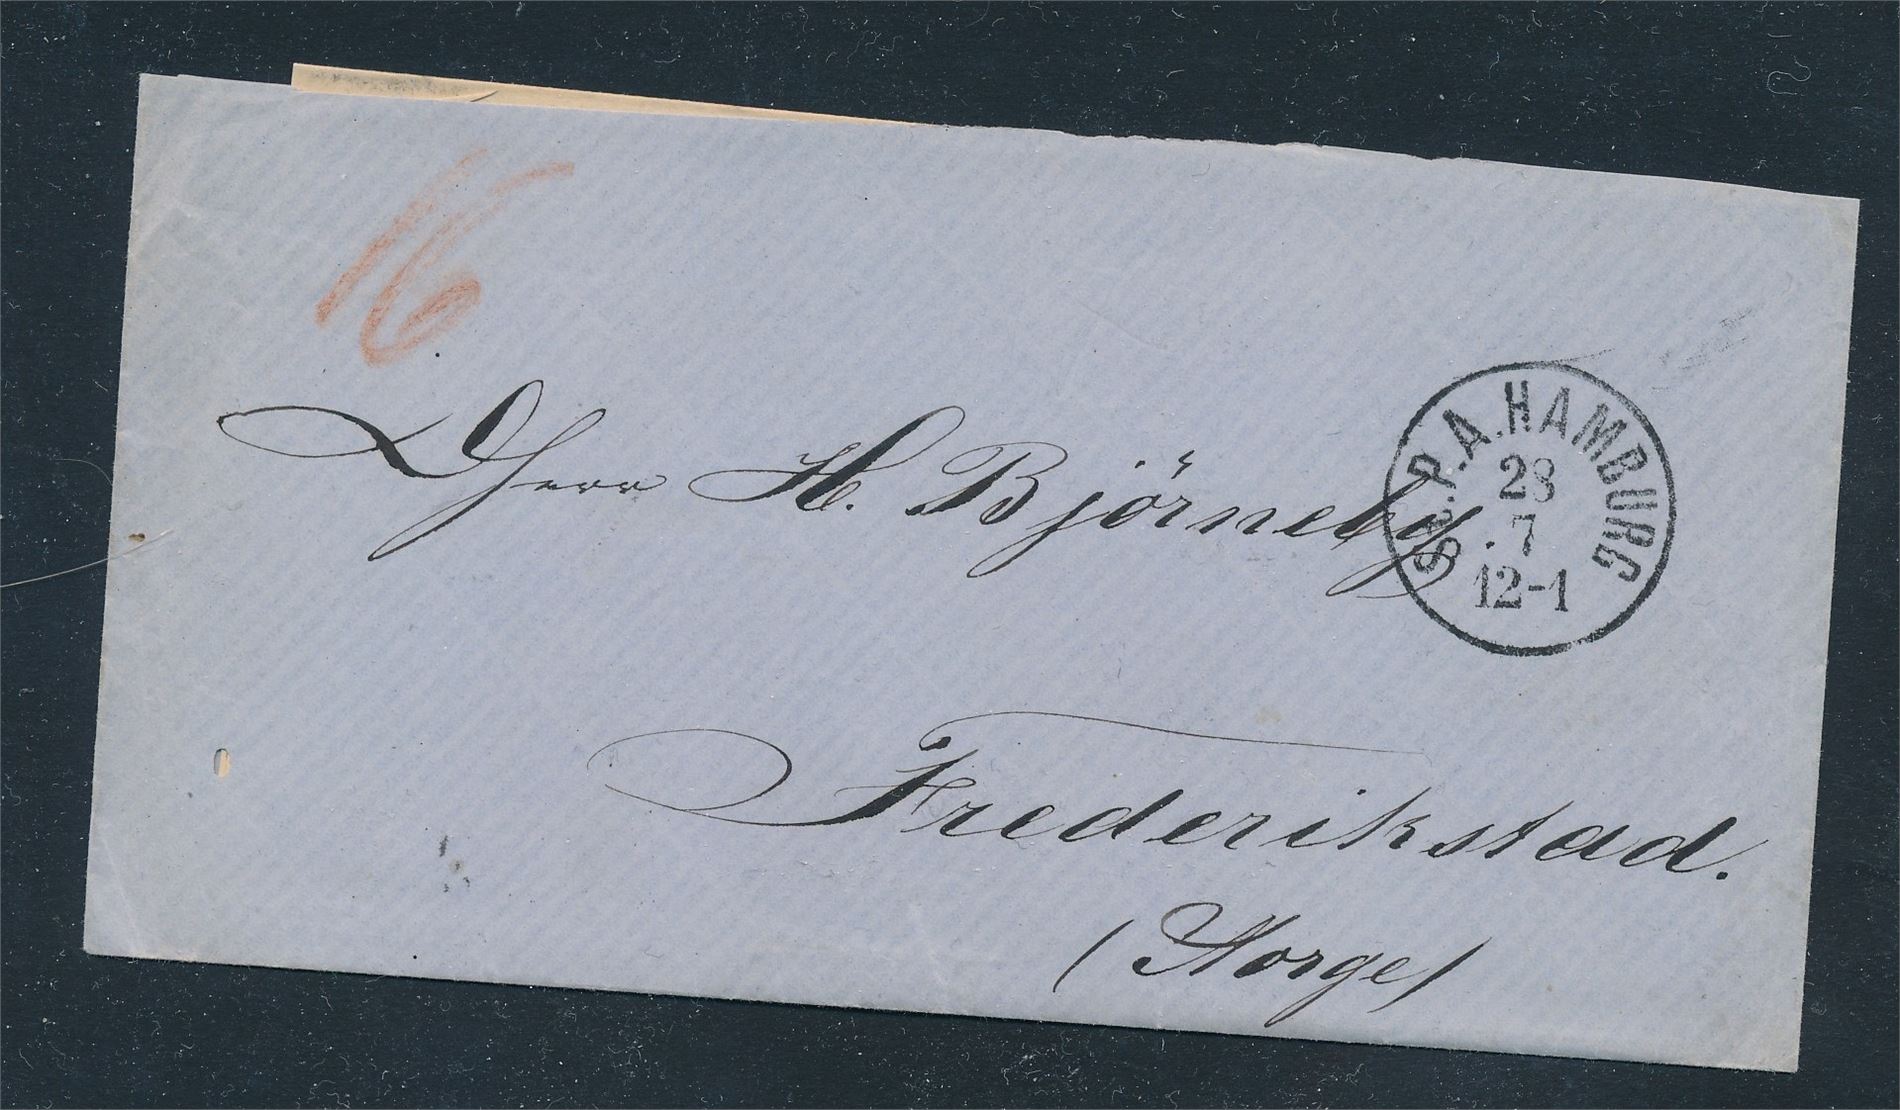 16
Herr H. Björneby
Frederikstad.
(Norge)
St.P.A. HAMBURG
28
. 7
12-1